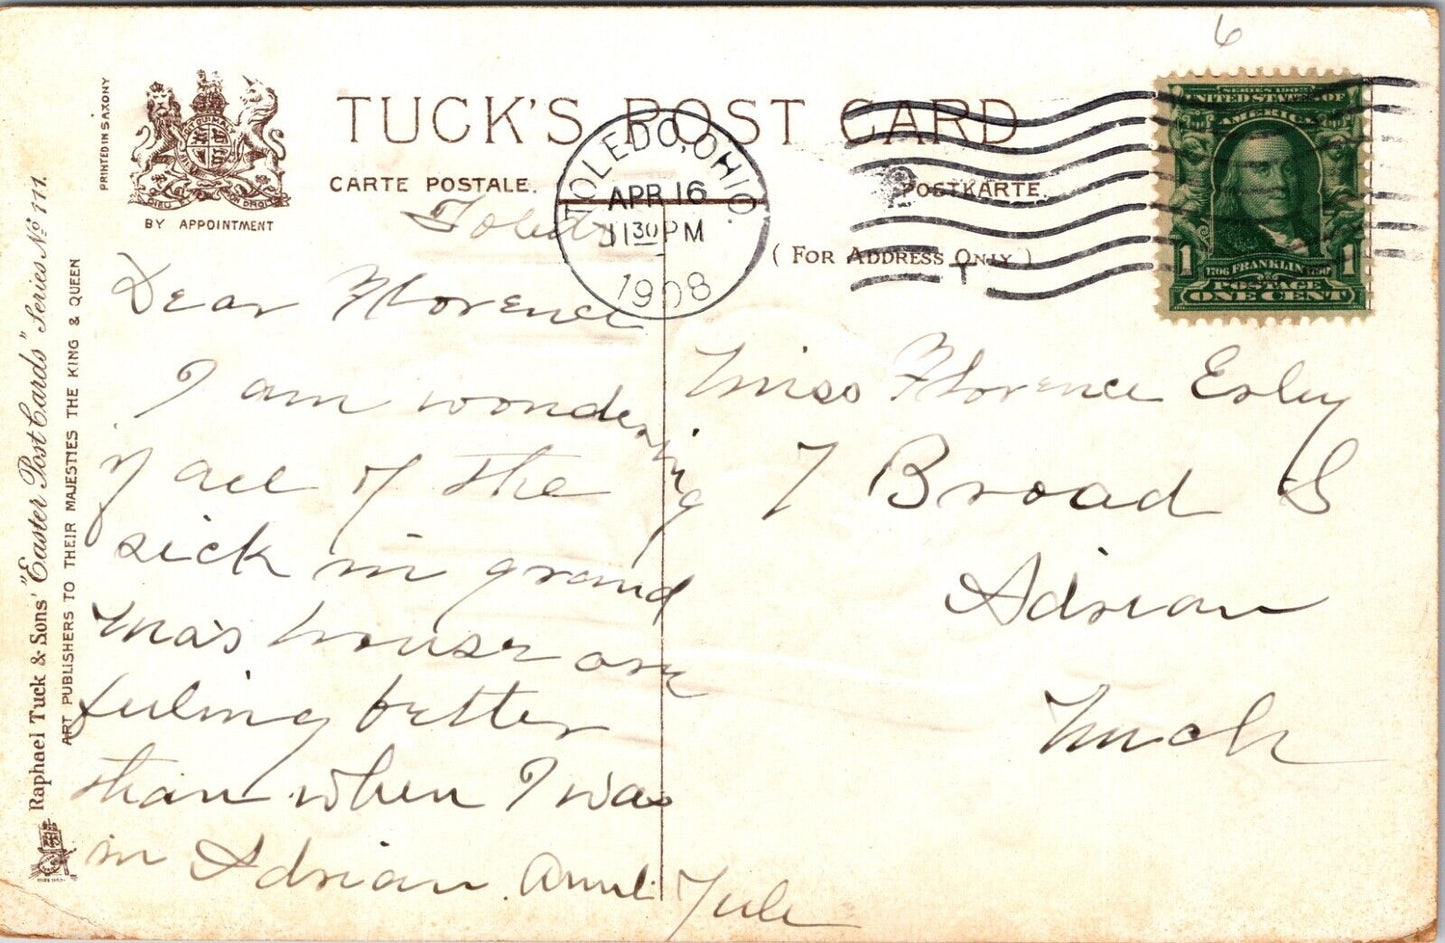 6
PRINTED IN SAXONY
DIEU ET MON DROIT
BY APPOINTMENT
TUCK'S POST CARD
CARTE POSTALE.
POSTKARTE.
(FOR ADDRESS ONLY)
TOLEDO, OHIO
APR 16
1130 PM
1908
SERIES 1902
UNITED STATES OF
AMERICA
1 1
1706 FRANKLIN 1790
POSTAGE
ONE CENT
Raphael Tuck & Sons' "Easter Post Cards" Series No 111.
ART PUBLISHERS TO THEIR MAJESTIES THE KING & QUEEN
Toledo
Dear Florence
I am wondering
if all of the
sick in grand
ma's house are
feeling better
than when I was
in Adrian. Aunt
Miss Florence Exley
7 Broad S
Adrian
Mich